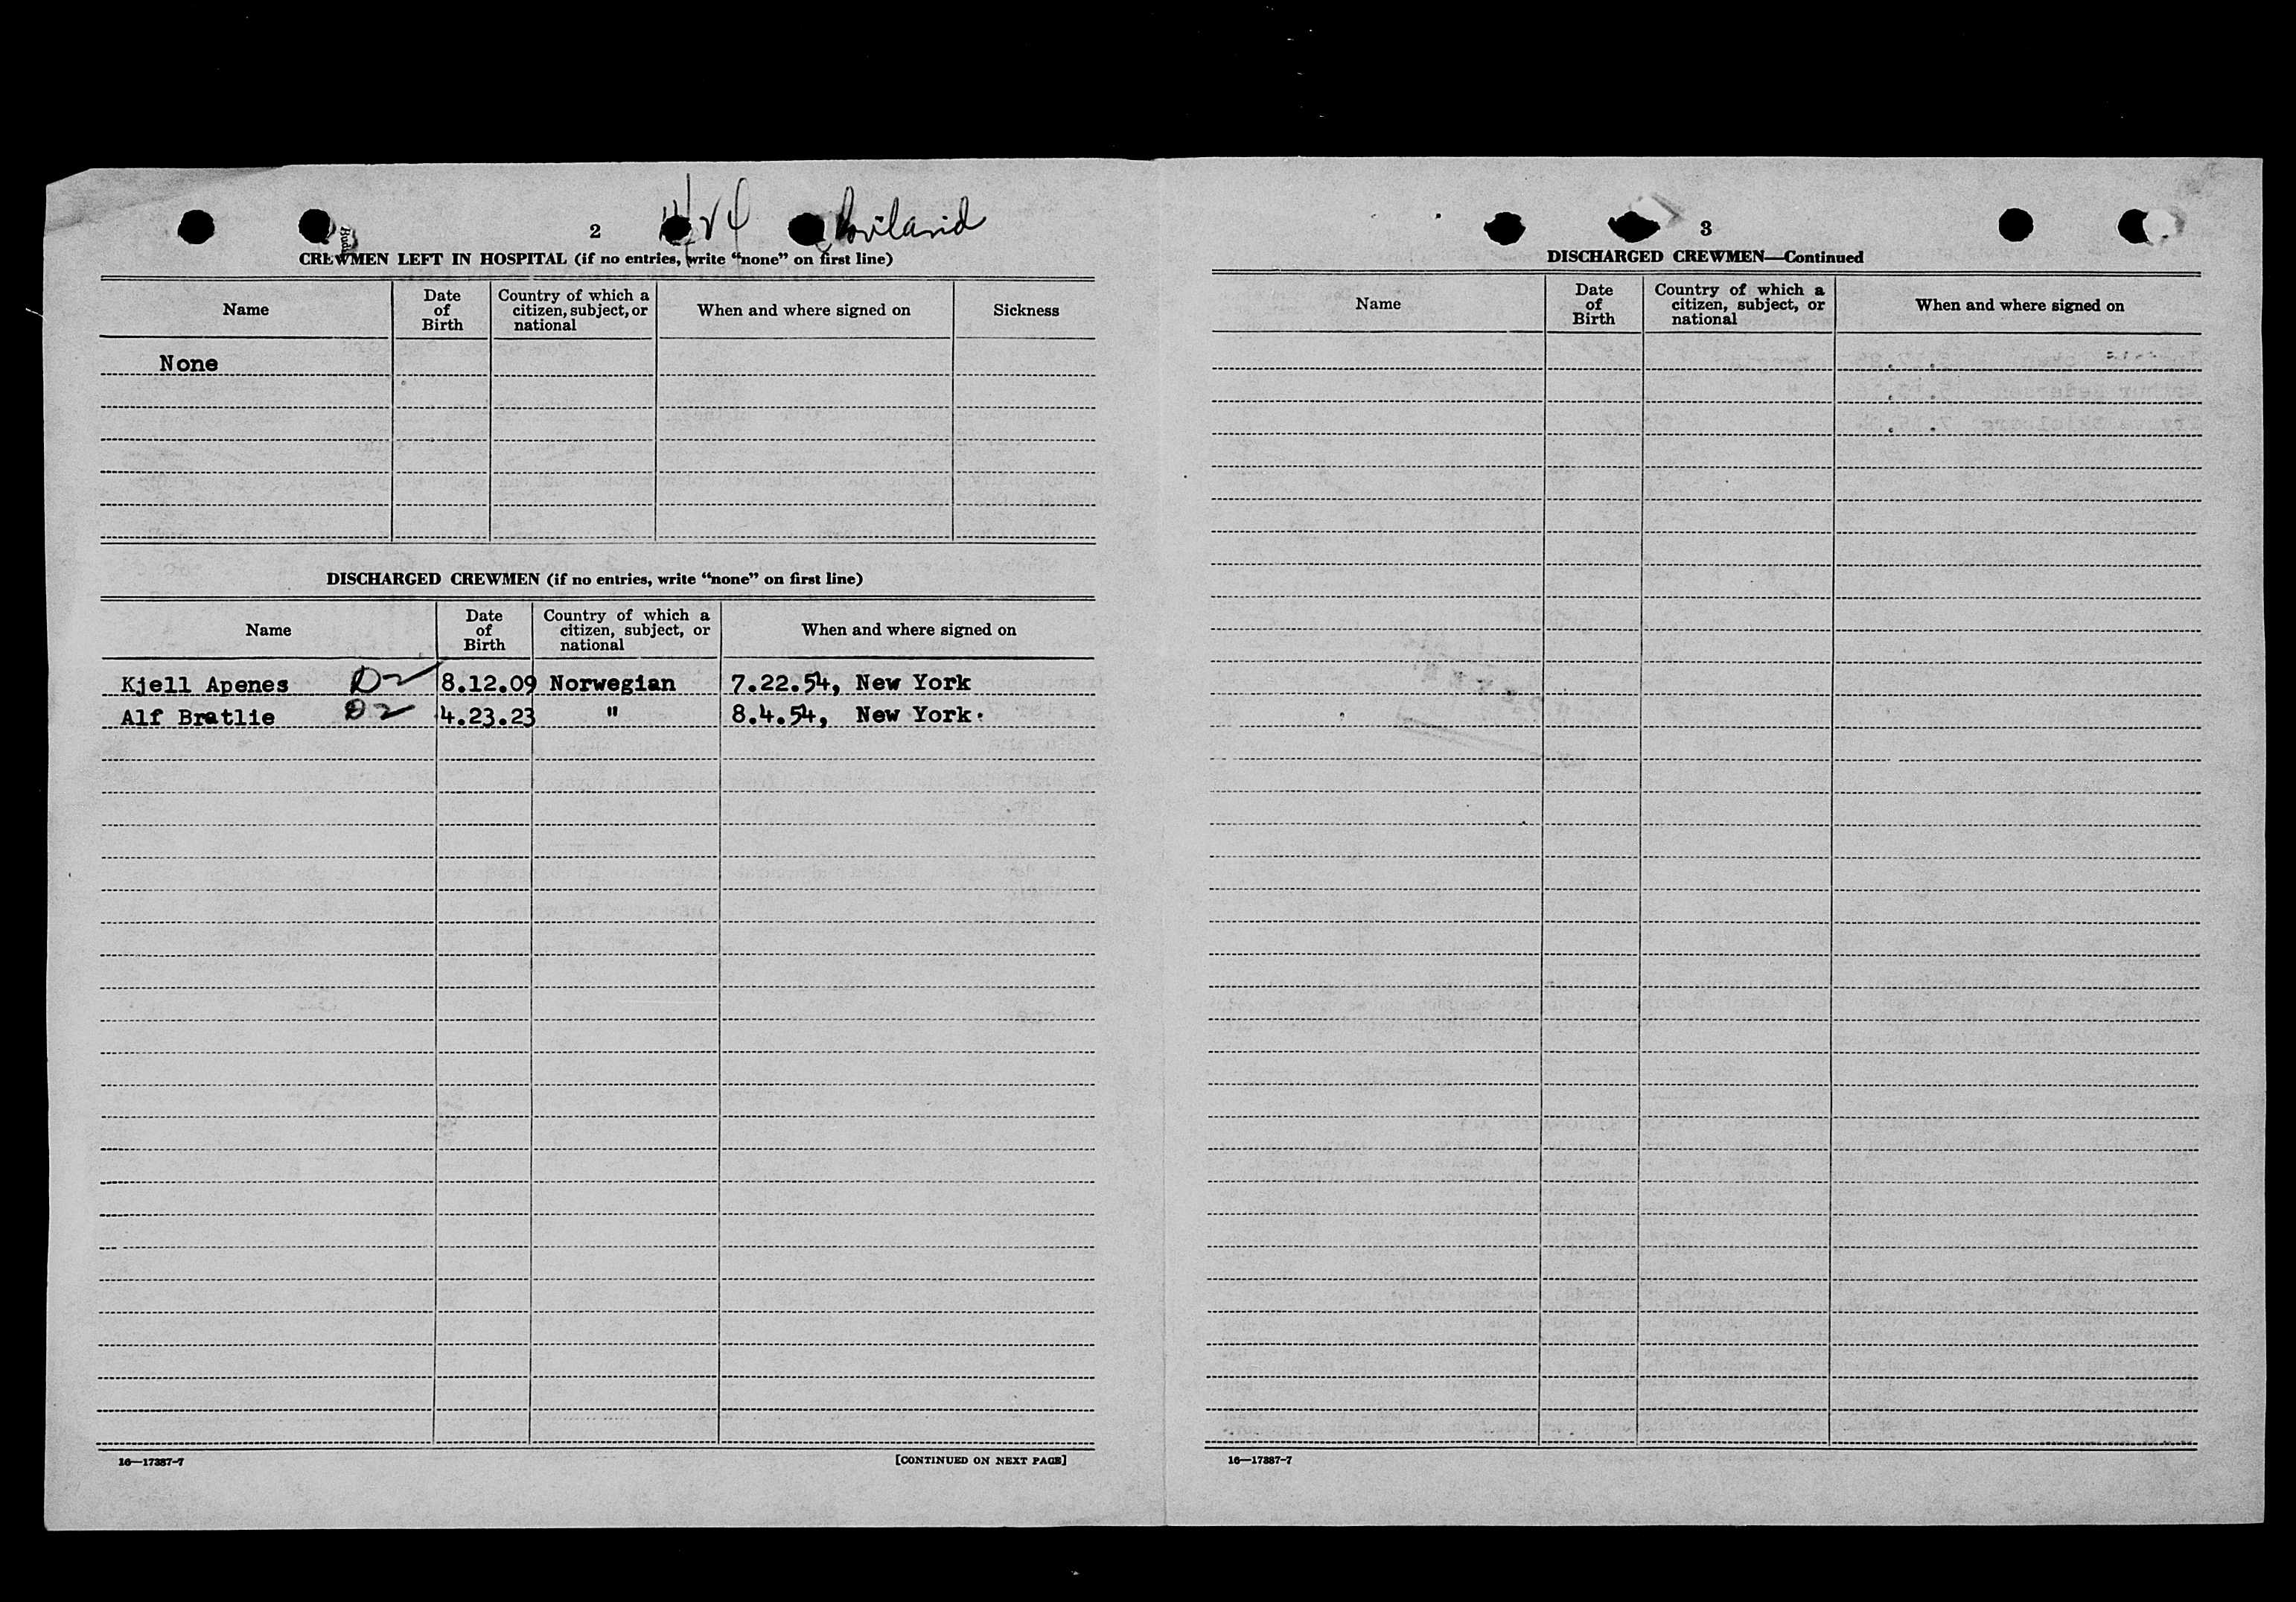 2
CREWMEN LEFT IN HOSPITAL (if no entries, write “none” on first line)
Name
Date of Birth
Country of which a citizen, subject, or national
When and where signed on
Sickness
None
DISCHARGED CREWMEN (if no entries, write “none” on first line)
Name
Date of Birth
Country of which a citizen, subject, or national
When and where signed on
Kjell Apenes D2 8.12.09 Norwegian 7.22.54, New York
Alf Bratlie D2 4.23.23 " 8.4.54, New York.
16—17387-7
[CONTINUED ON NEXT PAGE]
3
DISCHARGED CREWMEN—Continued
Name
Date of Birth
Country of which a citizen, subject, or national
When and where signed on
16—17387-7